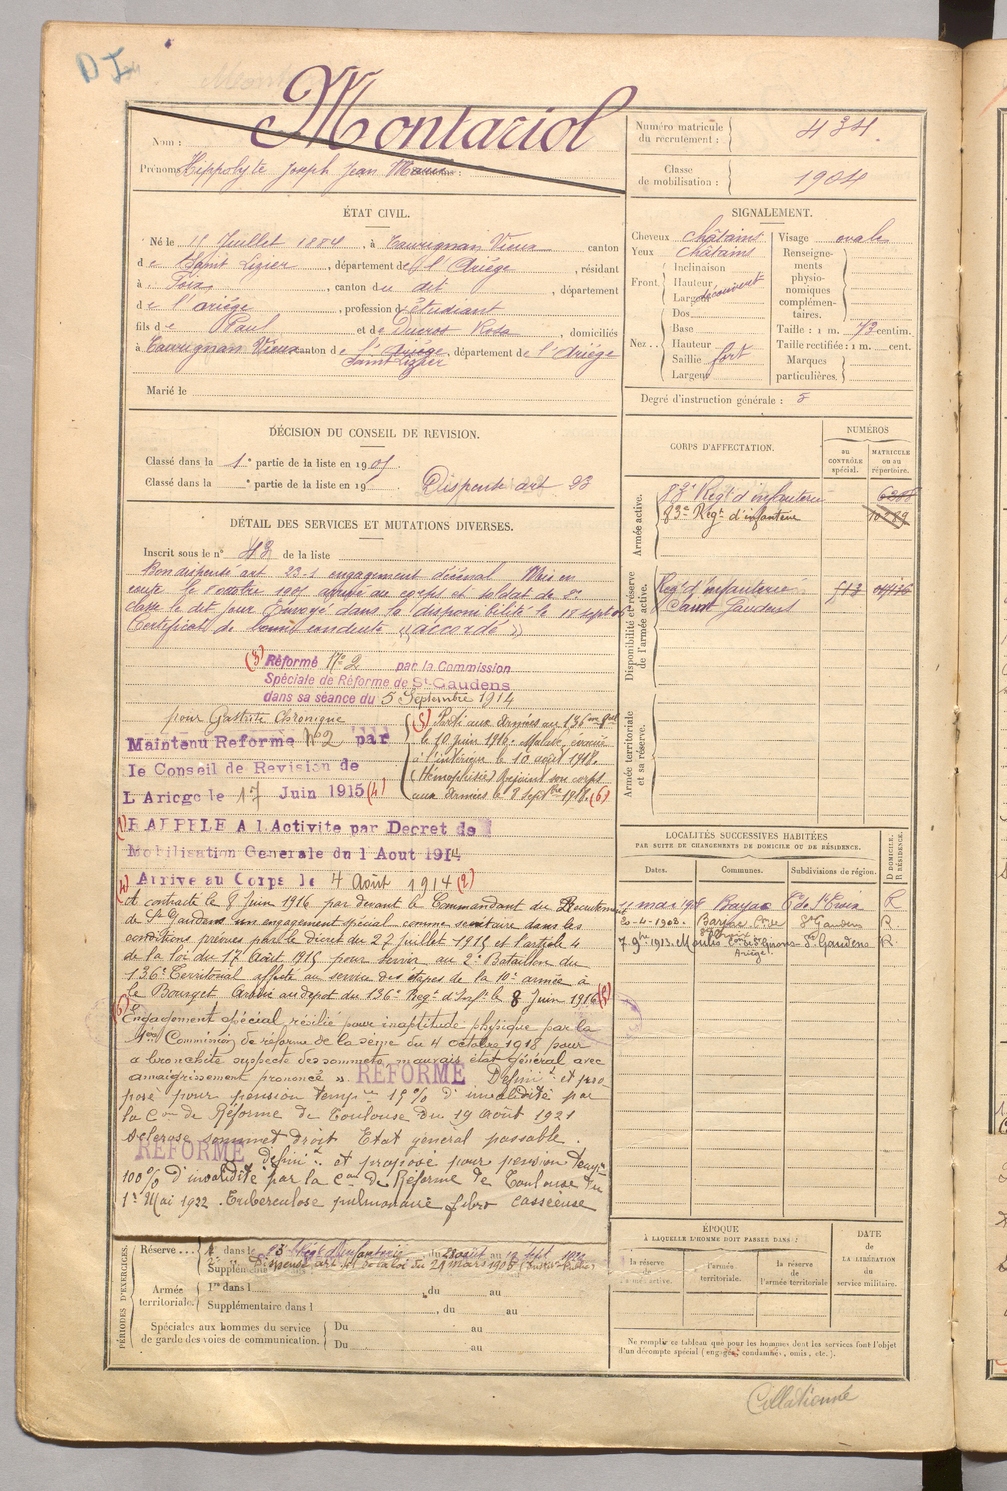 D I
Nom : Montariol
Prénoms Hippolyte Joseph Jean
Numéro matricule du recrutement : 434
Classe de mobilisation : 1904
ÉTAT CIVIL.
Né le 15 Juillet 1884, à Taurignan Vieux canton
de Saint Lizier, département de l'Ariège, résidant
à Foix, canton du dit, département
de l'ariége, profession d'étudiant
fils de Paul et de Ducros Rosa, domiciliés
à Taurignan Vieux canton de l'Ariége, département de l'Ariége
Saint Lizier
Marié le
SIGNALEMENT.
Cheveux châtains
Yeux châtains
Front Inclinaison
Hauteur
Largeur découvert
Nez Dos
Base
Hauteur
Saillie fort
Largeur
Visage ovale
Renseignements physionomiques complémentaires.
Taille : 1 m. 73 centim.
Taille rectifiée : 1 m. cent.
Marques particulières.
Degré d'instruction générale : 5
DÉCISION DU CONSEIL DE REVISION.
Classé dans la 1e partie de la liste en 1905
Classé dans la e partie de la liste en 19
Dispensé art 23
DÉTAIL DES SERVICES ET MUTATIONS DIVERSES.
Inscrit sous le n° 43 de la liste
Bon dispensé art 23-1 engagement décénal Mis en
route le 8 octobre 1905 arrivé au corps et soldat de 2e
classe le dit jour Envoyé dans la disponibilité le 18 sept 06
Certificat de bonne conduite "accordé"
(3) Réformé N° 2 par la Commission
Spéciale de Réforme de St-Gaudens
dans sa séance du 5 Septembre 1914
pour Gastrite Chronique
Maintenu Reforme N°2 par
le Conseil de Revision de
L Ariege le 17 Juin 1915 (4)
(5) Parti aux armées au 136me
le 10 juin 1916. Malade, évacué
à l'intérieur le 10 août 1918.
(Hémoptisie) Rejoint son corps
aux armées le 8 septbre 1918. (6)
(1) RAPPELE A l Activite par Decret de
Mobilisation Generale du 1 Aout 1914
Arrive au Corps le 4 Août 1914 (2)
(4) A contracté le 8 Juin 1916 par devant le Commandant du Recrutement
de St Gaudens un engagement spécial comme secrétaire dans les
conditions prévues par le décret du 27 Juillet 1915 et l'article 4
de la loi du 17 Août 1915 pour servir au 2e Bataillon du
136e Territorial affecté au service des étapes de la 10e armée à
le Bourget Arrivé au dépôt du 136e Regt d'Inf. le 8 Juin 1916 (5)
(6) Engagement spécial résilié pour inaptitude physique par la
1ère Commission de réforme de la Seine du 4 octobre 1918 pour
"bronchite suspecte des sommets, mauvais état général avec
amaigrissement prononcé". REFORMÉ Définit. et pro
posé pour pension tempre 15% d'invalidité par
la Con de Réforme de Toulouse du 19 août 1921
Sclérose sommet droit Etat général passable.
REFORME définit. et proposé pour pension temp.
100% d'invalidité par la Con de Réforme de Toulouse du
1er Mai 1922. Tuberculose pulmonaire fibro caséeuse
CORPS D'AFFECTATION.
NUMÉROS
au CONTRÔLE spécial.
MATRICULE ou au répertoire.
Armée active.
83e Regt d'infanterie
83e Regt d'infanterie 10289
Disponibilité et réserve de l'armée active.
Regt d'infanterie
Saint Gaudens
Armée territoriale et sa réserve.
LOCALITÉS SUCCESSIVES HABITÉES
PAR SUITE DE CHANGEMENTS DE DOMICILE OU DE RÉSIDENCE.
Dates. Communes. Subdivisions de région. D DOMICILE. R RÉSIDENCE.
R
20-4-1908. Barjac St Gaudens R.
Ste Croix
7. 9bre 1913. Moulis St Gaudens R.
Ariège
ÉPOQUE
À LAQUELLE L'HOMME DOIT PASSER DANS :
la réserve de l'armée active.
l'armée territoriale.
la réserve de l'armée territoriale
DATE de LA LIBÉRATION du service militaire.
Ne remplir ce tableau que pour les hommes dont les services font l'objet
d'un décompte spécial (engagés, condamnés, omis, etc.).
PÉRIODES D'EXERCICES.
Réserve 1e dans le 83e Regt d'Infanterie, du 23 août au
Supplém
Armée territoriale. 1re dans l , du au
Supplémentaire dans l , du au
Spéciales aux hommes du service
de garde des voies de communication.
Du au
Du au
Collationné